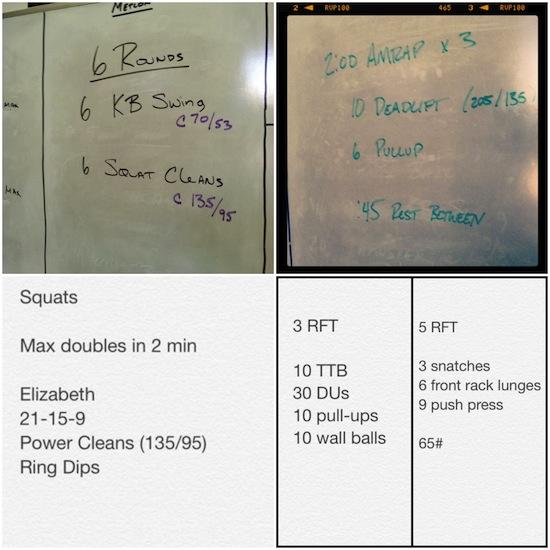 METCON
6 ROUNDS
6 KB SWING
C 70/53
6 SQUAT CLEANS
C 135/95
MAX
MAX
2 RVP100 465 3 RVP100
2:00 AMRAP x 3
10 DEADLIFT (205/135
6 PULLUP
:45 REST BETWEEN
Squats
Max doubles in 2 min
Elizabeth
21-15-9
Power Cleans (135/95)
Ring Dips
3 RFT
10 TTB
30 DUs
10 pull-ups
10 wall balls
5 RFT
3 snatches
6 front rack lunges
9 push press
65#